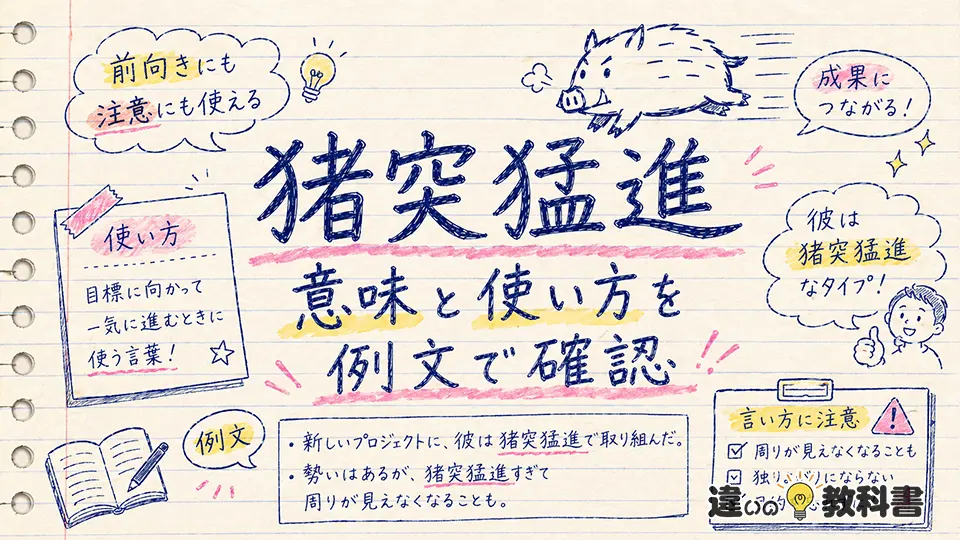 前向きにも
注意にも使える
成果に
つながる！
猪突猛進
意味と使い方を
例文で確認
使い方
目標に向かって
一気に進むときに
使う言葉！
彼は
猪突猛進
なタイプ！
例文
・新しいプロジェクトに、彼は猪突猛進で取り組んだ。
・勢いはあるが、猪突猛進すぎて
周りが見えなくなることも。
言い方に注意
周りが見えなくなることも
にならない
違いの教科書